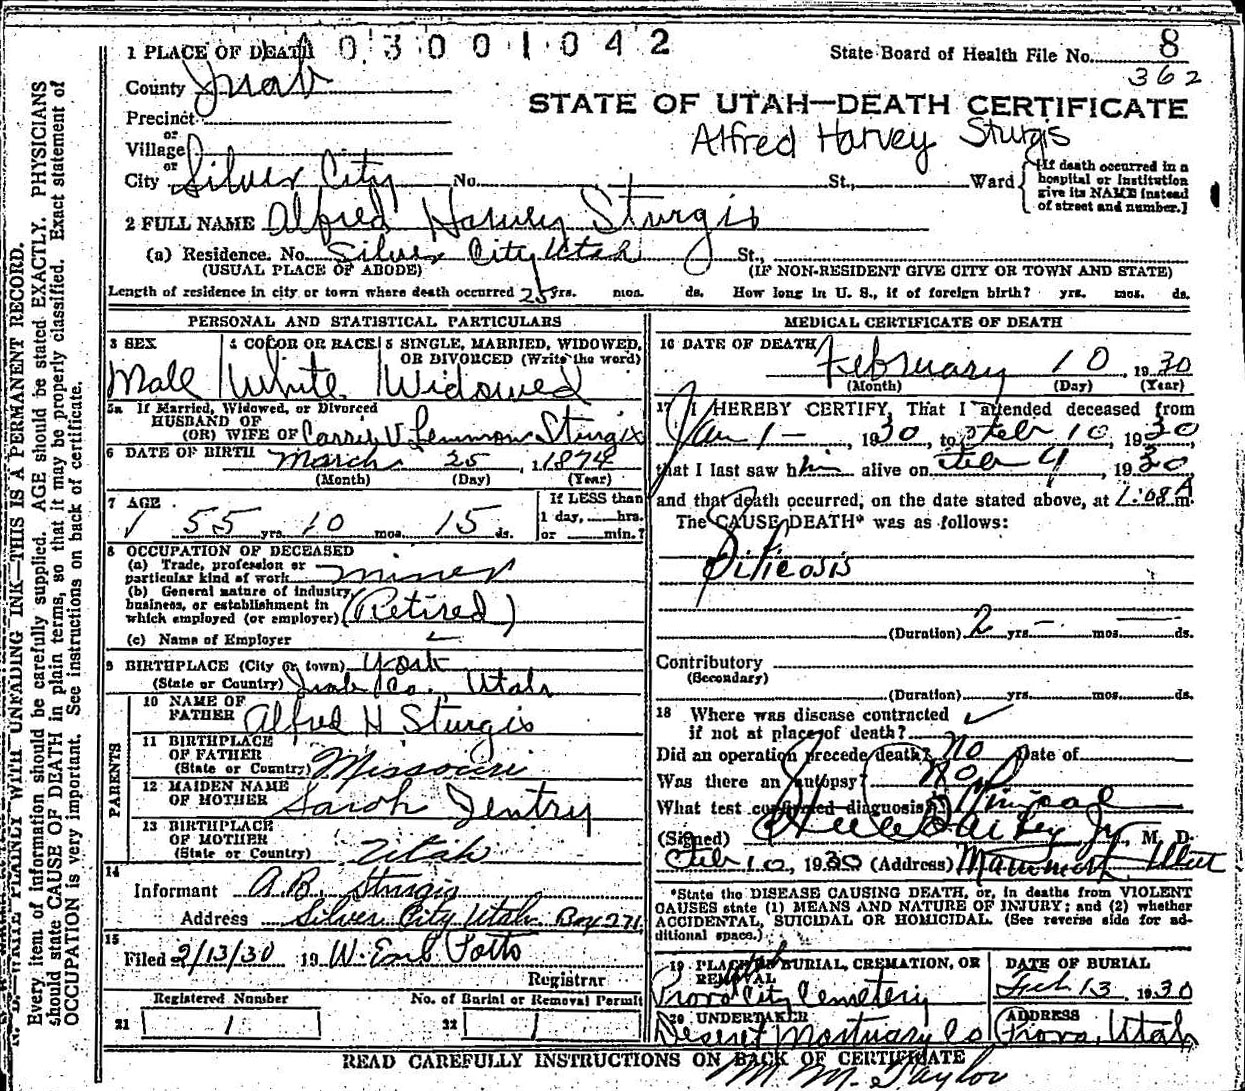 1 PLACE OF DEATH 03001042 State Board of Health File No. 8
362
County Juab
STATE OF UTAH—DEATH CERTIFICATE
Precinct
Alfred Harvey Sturgis
or
Village
or
City Silver City No. St., Ward
[If death occurred in a
hospital or institution
give its NAME instead
of street and number.]
2 FULL NAME Alfred Harvey Sturgis
(a) Residence. No. Silver City Utah St.,
(USUAL PLACE OF ABODE) (IF NON-RESIDENT GIVE CITY OR TOWN AND STATE)
Length of residence in city or town where death occurred 25 yrs. mos. ds. How long in U. S., if of foreign birth? yrs. mos. ds.
PERSONAL AND STATISTICAL PARTICULARS
3 SEX 4 COLOR OR RACE 5 SINGLE, MARRIED, WIDOWED,
OR DIVORCED (Write the word)
Male White Widowed
5a If Married, Widowed, or Divorced
HUSBAND OF
(OR) WIFE OF Carrie V Lemmon Sturgis
6 DATE OF BIRTH March 25, 1874
(Month) (Day) (Year)
7 AGE 55 yrs. 10 mos. 15 ds.
If LESS than
1 day, hrs.
or min.?
8 OCCUPATION OF DECEASED
(a) Trade, profession or
particular kind of work miner
(b) General nature of industry,
business, or establishment in
which employed (or employer) (Retired)
(c) Name of Employer
9 BIRTHPLACE (City or town) York
(State or Country) Juab Co. Utah
PARENTS
10 NAME OF
FATHER Alfred H Sturgis
11 BIRTHPLACE
OF FATHER
(State or Country) Missouri
12 MAIDEN NAME
OF MOTHER Sarah Jentry
13 BIRTHPLACE
OF MOTHER
(State or Country) Utah
14
Informant A. B. Sturgis
Address Silver City Utah Box 271
15
Filed 2/13/30 19 W. Earl Potts
Registrar
Registered Number No. of Burial or Removal Permit
21 1 22 1
MEDICAL CERTIFICATE OF DEATH
16 DATE OF DEATH February 10, 1930
(Month) (Day) (Year)
17 I HEREBY CERTIFY, That I attended deceased from
Jan 1 - , 1930, to Feb 10, 1930
that I last saw him alive on Feb 9, 1930
and that death occurred, on the date stated above, at 1:08 A m.
The CAUSE DEATH* was as follows:
Silicosis
(Duration) 2 yrs. - mos. - ds.
Contributory
(Secondary)
(Duration) yrs. mos. ds.
18 Where was disease contracted
if not at place of death?
Did an operation precede death? No Date of
Was there an autopsy? No
What test confirmed diagnosis? Clinical
(Signed) Steele Bailey Jr., M. D.
Feb 10, 1930 (Address) Mammoth Utah
*State the DISEASE CAUSING DEATH, or, in deaths from VIOLENT
CAUSES state (1) MEANS AND NATURE OF INJURY; and (2) whether
ACCIDENTAL, SUICIDAL OR HOMICIDAL. (See reverse side for ad-
ditional space.)
19 PLACE OF BURIAL, CREMATION, OR
REMOVAL
Provo City Cemetery
DATE OF BURIAL
Feb 13, 1930
20 UNDERTAKER
Deseret Mortuary Co
ADDRESS
Provo, Utah
READ CAREFULLY INSTRUCTIONS ON BACK OF CERTIFICATE
M. M. Taylor
N. B.—WRITE PLAINLY WITH UNFADING INK—THIS IS A PERMANENT RECORD.
Every item of information should be carefully supplied. AGE should be stated EXACTLY. PHYSICIANS
should state CAUSE OF DEATH in plain terms, so that it may be properly classified. Exact statement of
OCCUPATION is very important. See instructions on back of certificate.